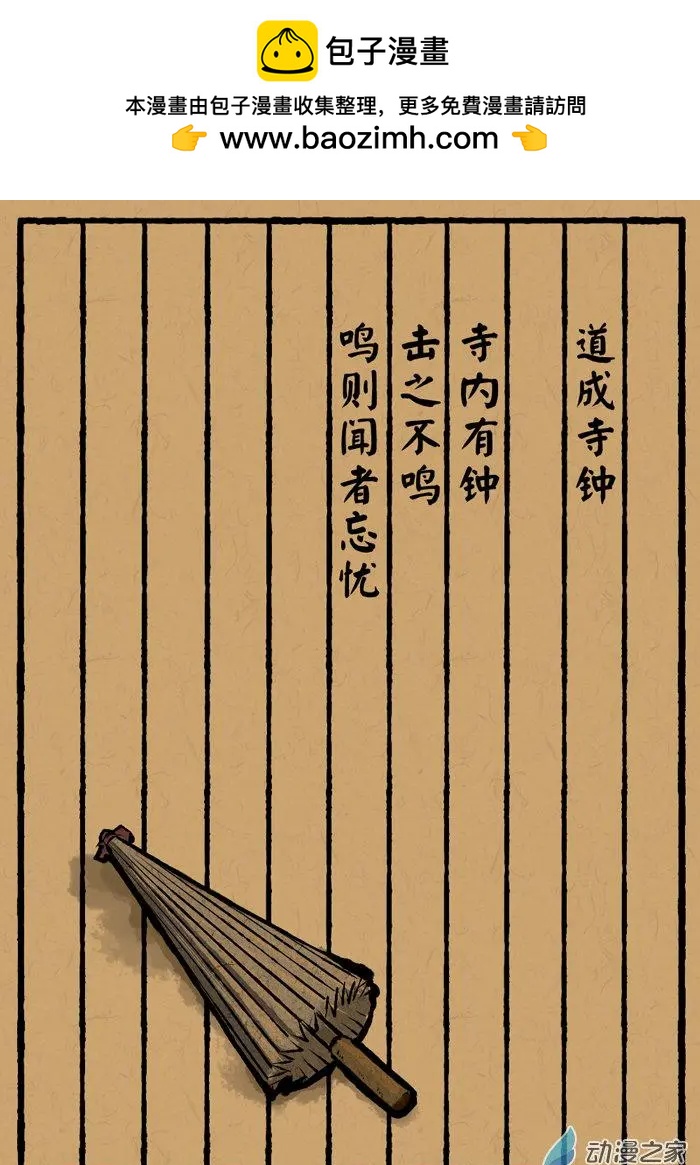 包子漫畫
本漫畫由包子漫畫收集整理，更多免費漫畫請訪問
👉 www.baozimh.com 👈
道成寺钟
寺内有钟
击之不鸣
鸣则闻者忘忧
动漫之家